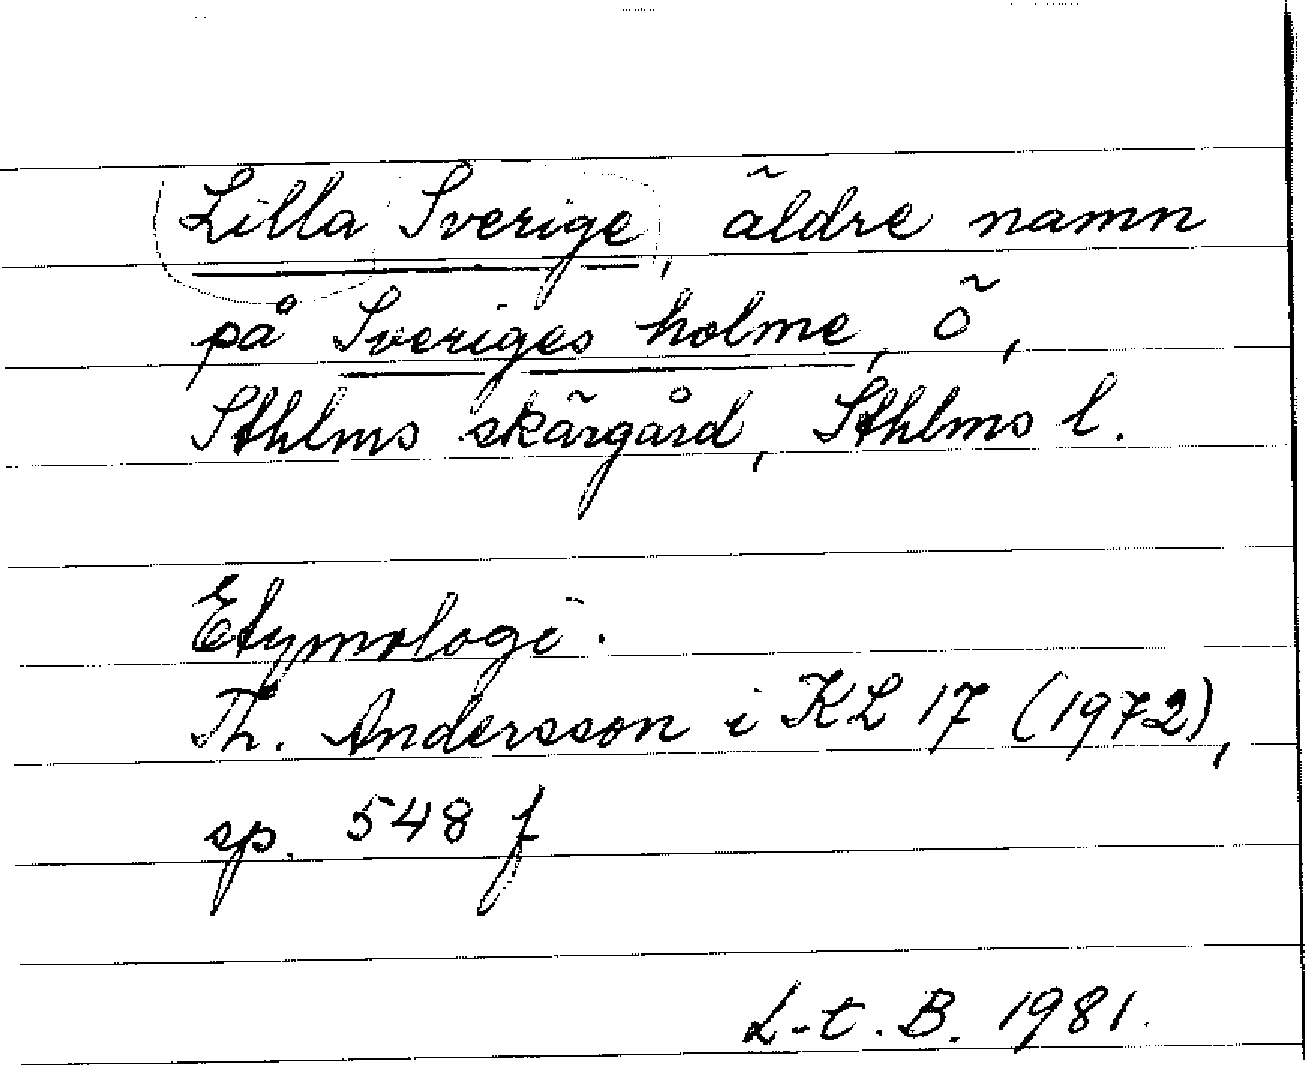 Lilla Sverige, äldre namn
på Sveriges holme, ö,
Sthlms skärgård, Sthlms l.
Etymologi.
Th. Andersson i KL 17 (1972),
sp. 548 f
L-t. B. 1981.